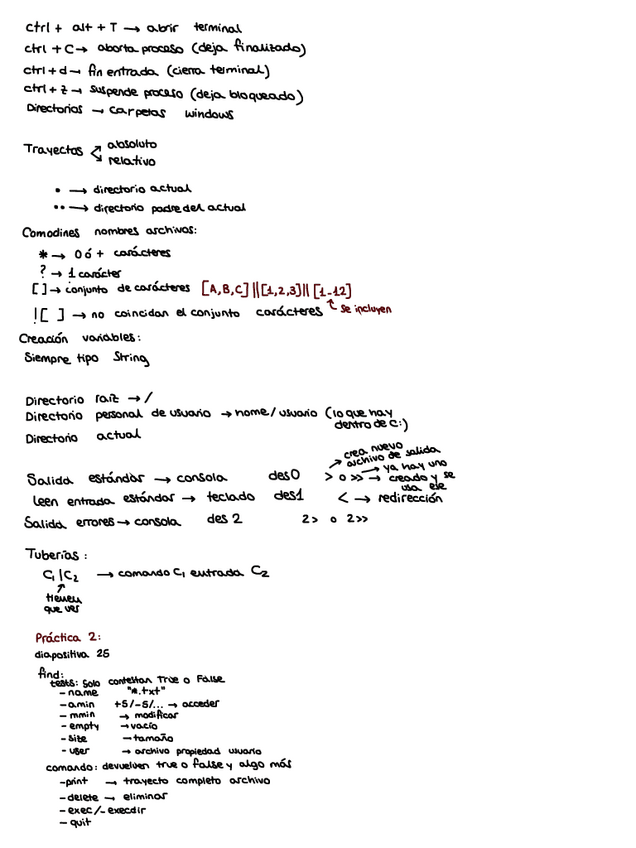 ctrl + alt + T → abrir terminal
ctrl + C → aborta proceso (deja finalizado)
ctrl + d → fin entrada (cierra terminal)
ctrl + z → suspende proceso (deja bloqueado)
Directorios → carpetas windows
Trayectos
absoluto
relativo
• → directorio actual
•• → directorio padre del actual
Comodines nombres archivos:
* → 0 ó + carácteres
? → 1 carácter
[ ] → conjunto de carácteres [A,B,C] || [1,2,3] || [1-12]
↑ se incluyen
![ ] → no coincidan el conjunto carácteres
Creación variables:
Siempre tipo String
Directorio raíz → /
Directorio personal de usuario → home/usuario (lo que hay
dentro de C:)
Directorio actual
crea nuevo
archivo de salida
Salida estándar → consola des 0 > o >> → ya hay uno
creado y se
usa ese
leen entrada estándar → teclado des 1 < → redirección
Salida errores → consola des 2 2> o 2>>
Tuberías:
C₁|C₂ → comando C₁ entrada C₂
tienen
que ver
Práctica 2:
diapositiva 25
find:
tests: Solo contestan True o False
-name "*.txt"
-amin +5/-5/... → acceder
-mmin → modificar
-empty → vacío
-size → tamaño
-user → archivo propiedad usuario
comando: devuelven true o false y algo más
-print → trayecto completo archivo
-delete → eliminar
-exec/-execdir
-quit